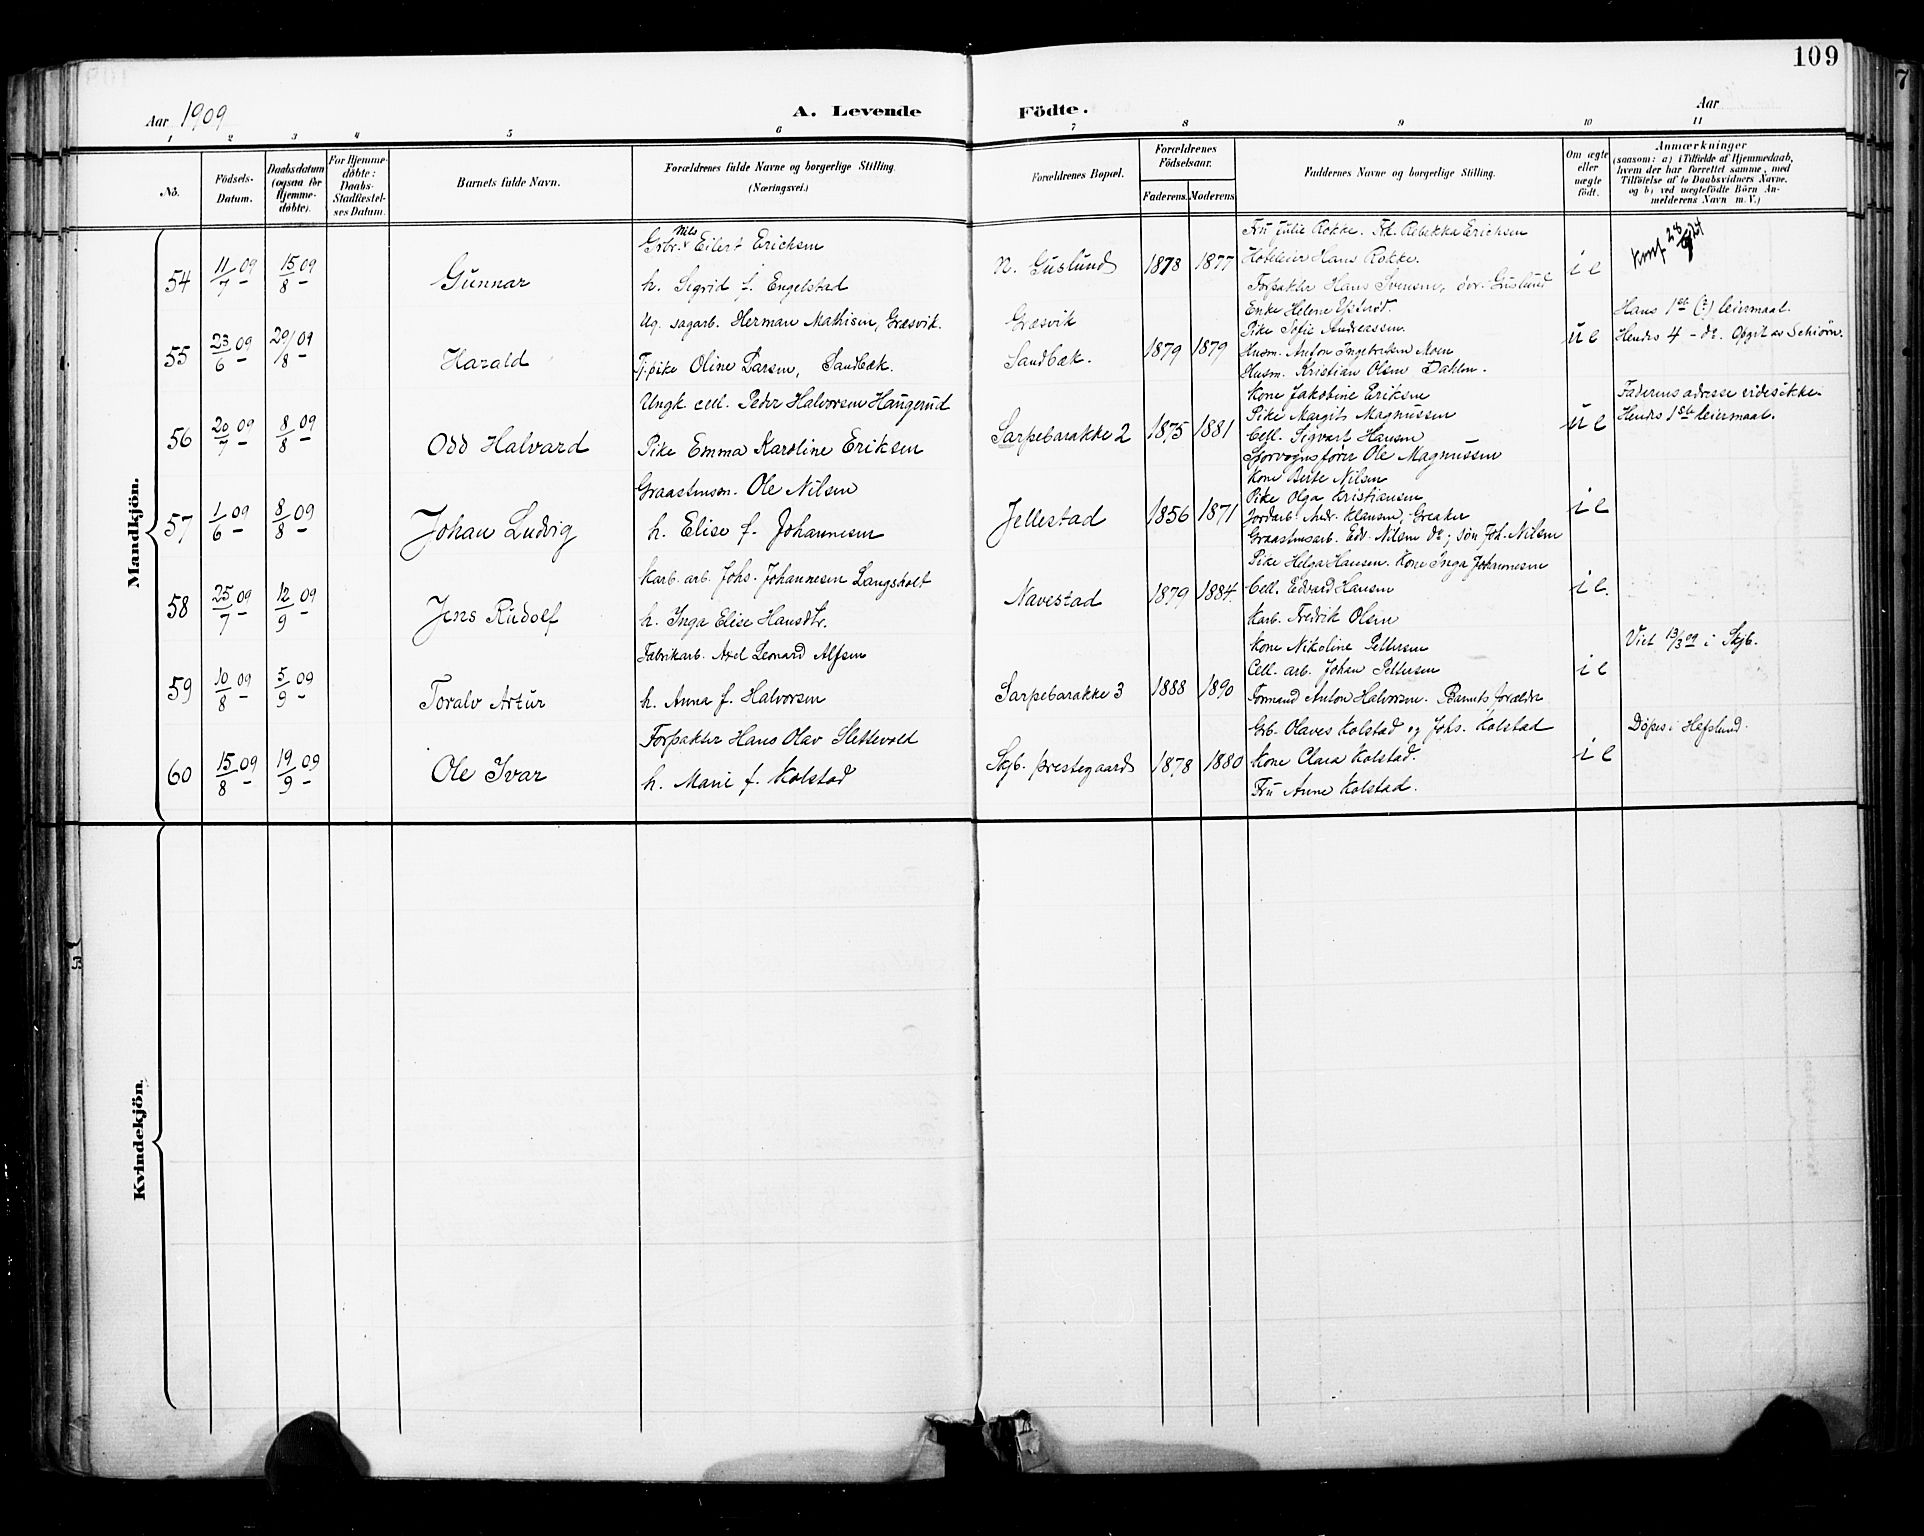 109
Aar 1909
A. Levende Födte.
Aar
1 2 3 4 5 6 7 8 9 10 11
No.
Födsels-Datum.
Daabsdatum (ogsaa for Hjemme-döbte).
For Hjemme-döbte: Daabs-Stadfæstel-ses Datum.
Barnets fulde Navn.
Forældrenes fulde Navne og borgerlige Stilling. (Næringsvei.)
Forældrenes Bopæl.
Forældrenes Födselsaar.
Faderens. Moderens.
Faddernes Navne og borgerlige Stilling.
Om ægte eller uægte födt.
Anmærkninger
(saasom: a) i Tilfælde af Hjemmedaab,
hvem der har forrettet samme, med
Tilföielse af to Daabsvidners Navne,
og b) ved uægtefödte Börn An-
melderens Navn m. V.)
Mandkjön.
54 11/7 09 15/8 09 Gunnar
Grbr. Nils Eilert Erichsen
h. Sigrid f. Engelstad
N. Guslund 1878 1877
Fru Julie Rokke. Fd. Rebekka Erichsen
Hoteleier Hans Rokke.
Forpakter Hans Svensen, Guslund
i e
Konf 28/9 24
55 23/6 09 29/8 09 Harald
Ug. sagarb. Herman Mathisen, Græsvik.
Tj.pike Oline Larsen, Sandbæk.
Græsvik
Sandbæk. 1879 1879
Enke Helene Ystrød.
Pike Sofie Andreassen.
Husm. Anton Ingebretsen Moen
Husm. Kristian Olsen Dahlen.
u e
Hans 1ste (?) leiermaal.
Hendes 4 - do. Opgit av Schiørn.
56 20/7 09 8/8 09 Odd Halvard
Ungk. cell. Peder Halvorsen Haugerud
Pike Emma Karoline Eriksen
Sarpebarakke 2 1875 1881
Kone Jakobine Eriksen
Pike Margit Magnussen
Cell. Sigvart Hansen
Sporvognsfører Ole Magnussen
u e
Faderens adresse vides ikke.
Hendes 1ste leiermaal.
57 1/6 09 8/8 09 Johan Ludvig
Graastensm. Ole Nilsen
h. Elise f. Johannesen
Jellestad 1856 1871
Kone Berte Nilsen
Pike Olga Kristiansen
Jordarb. Andr. Klausen, Greaker
Graastensarb. Edv. Nilsen do; søn Joh. Nilsen
i e
58 25/7 09 12/9 09 Jens Rudolf
Karb. arb. Johs. Johannesen Langsholt
h. Inga Elise Hansdtr.
Navestad 1879 1884.
Pike Helga Hansen. Kone Inga Johannesen
Cell. Edvard Hansen
Karb. Fredrik Olsen
i e.
59 10/8 09 5/9 09 Toralv Artur
Fabrikarb. Axel Leonard Alfsen
h. Anna f. Halvorsen
Sarpebarakke 3 1888 1890
Kone Nikoline Pettersen
Cell. arb. Johan Pettersen
Formand Anton Halvorsen. Barnets forældre
i e
Viet 13/3 09 i Skjb.
60 15/8 09 19/9 09 Ole Ivar
Forpakter Hans Olav Slettevold
h. Marie f. Kolstad
Skjb. prestegaard 1878 1880
Grb. Olaves Kolstad og Johs. Kolstad
Kone Clara Kolstad.
Fru Anne Kolstad.
i e
Døpes i Hafslund.
Kvindekjön.